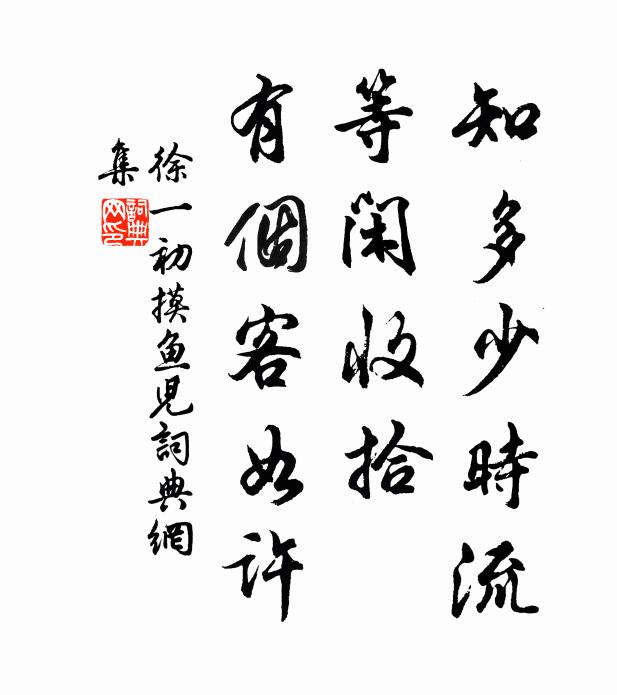 知多少時流
等閑收拾
有個客如許
徐一初摸魚児詞典網
集
詞典
网印